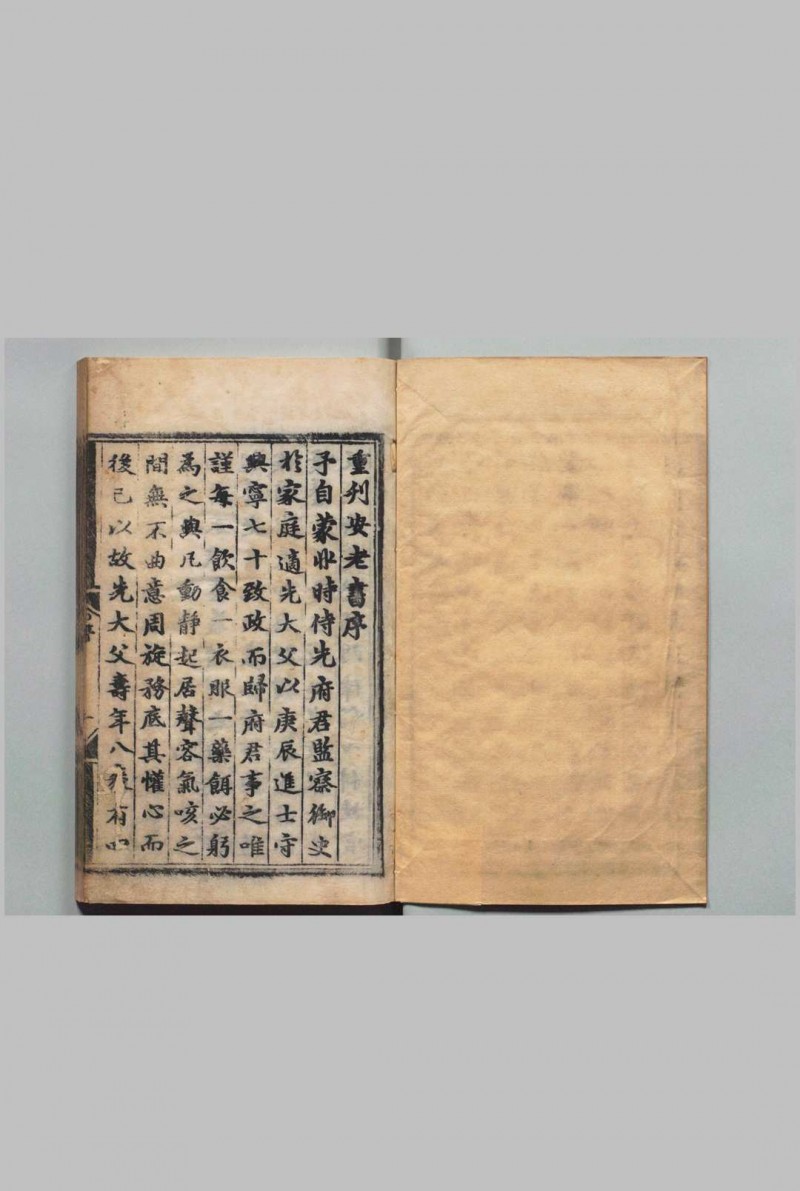 重刋安老書序
予自蒙丱時侍先府君監察御史
扵家庭適先大父以庚辰進士守
興寧七十致政而歸府君事之唯
謹每一飲食一衣服一藥餌必躬
為之與凡動静起居聲容氣咳之
間無不曲意周旋務底其懽心而
後已以故先大父壽年八有